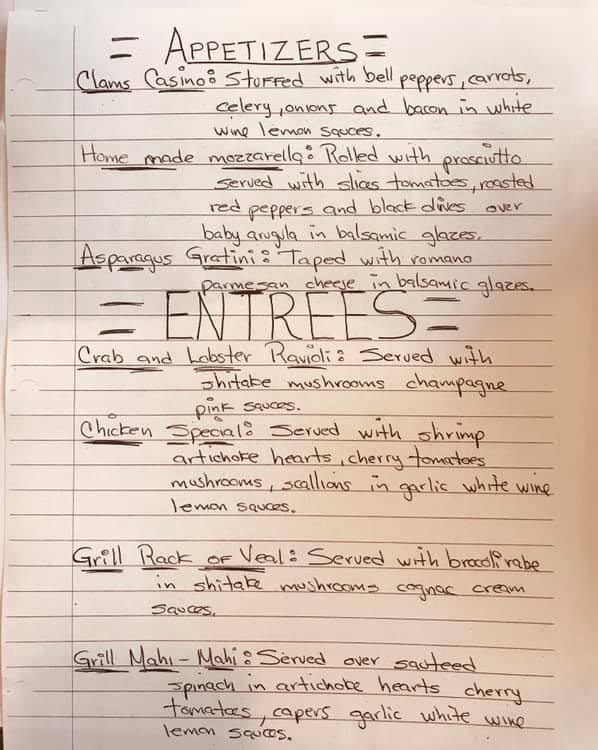 = APPETIZERS =
Clams Casino: Stuffed with bell peppers, carrots,
celery, onions and bacon in white
wine lemon sauces.
Home made mozzarella: Rolled with prosciutto
served with slices tomatoes, roasted
red peppers and black olives over
baby arugila in balsamic glazes.
Asparagus Gratini: Taped with romano
parmesan cheese in balsamic glazes.
= ENTREES =
Crab and Lobster Ravioli: Served with
shitake mushrooms champagne
pink sauces.
Chicken Special: Served with shrimp
artichoke hearts, cherry tomatoes
mushrooms, scallions in garlic white wine
lemon sauces.
Grill Rack of Veal: Served with brocoli rabe
in shitake mushrooms cognac cream
sauces.
Grill Mahi-Mahi: Served over sauteed
spinach in artichoke hearts cherry
tomatoes, capers garlic white wine
lemon sauces.